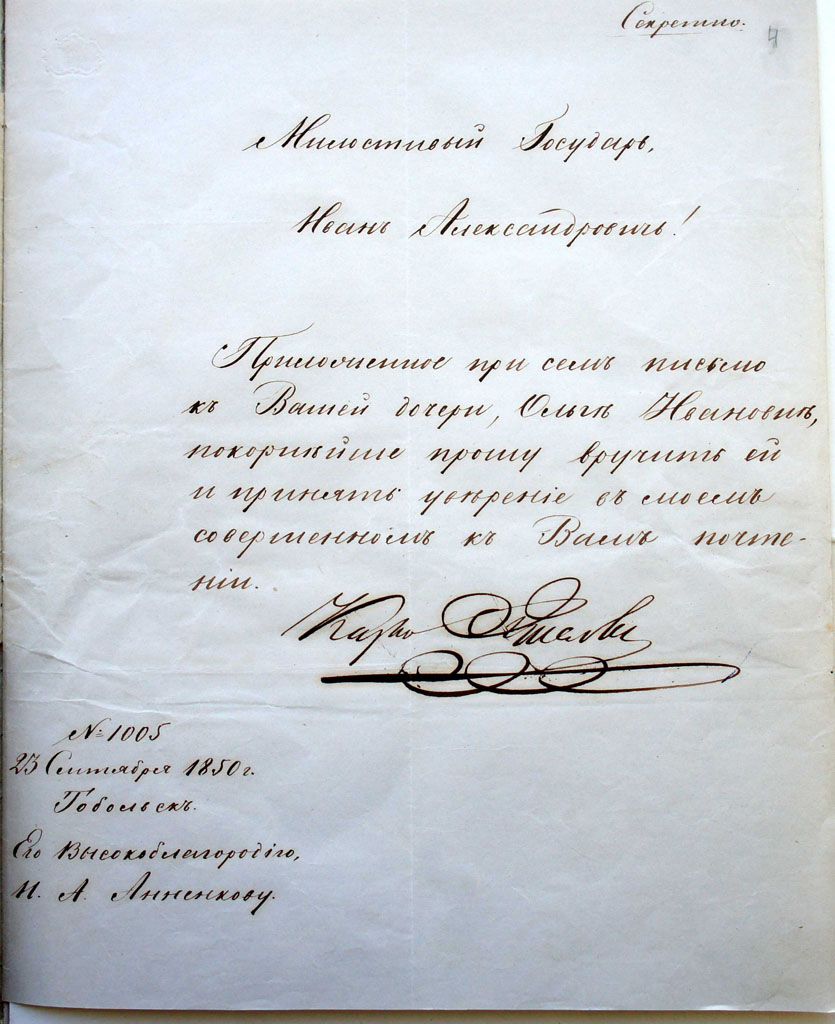 Секретно.
4
Милостивый Государь,
Иванъ Александровичь!
Приложенное при семъ письмо
къ Вашей дочери, Ольгѣ Ивановнѣ,
покорнѣйше прошу вручить ей
и принять увѣреніе въ моемъ
совершенномъ къ Вамъ почте-
ніи.
Карлъ
№ 1005
23 Сентября 1850 г.
Тобольскъ.
Его Высокоблагородію,
И. А. Анненкову.